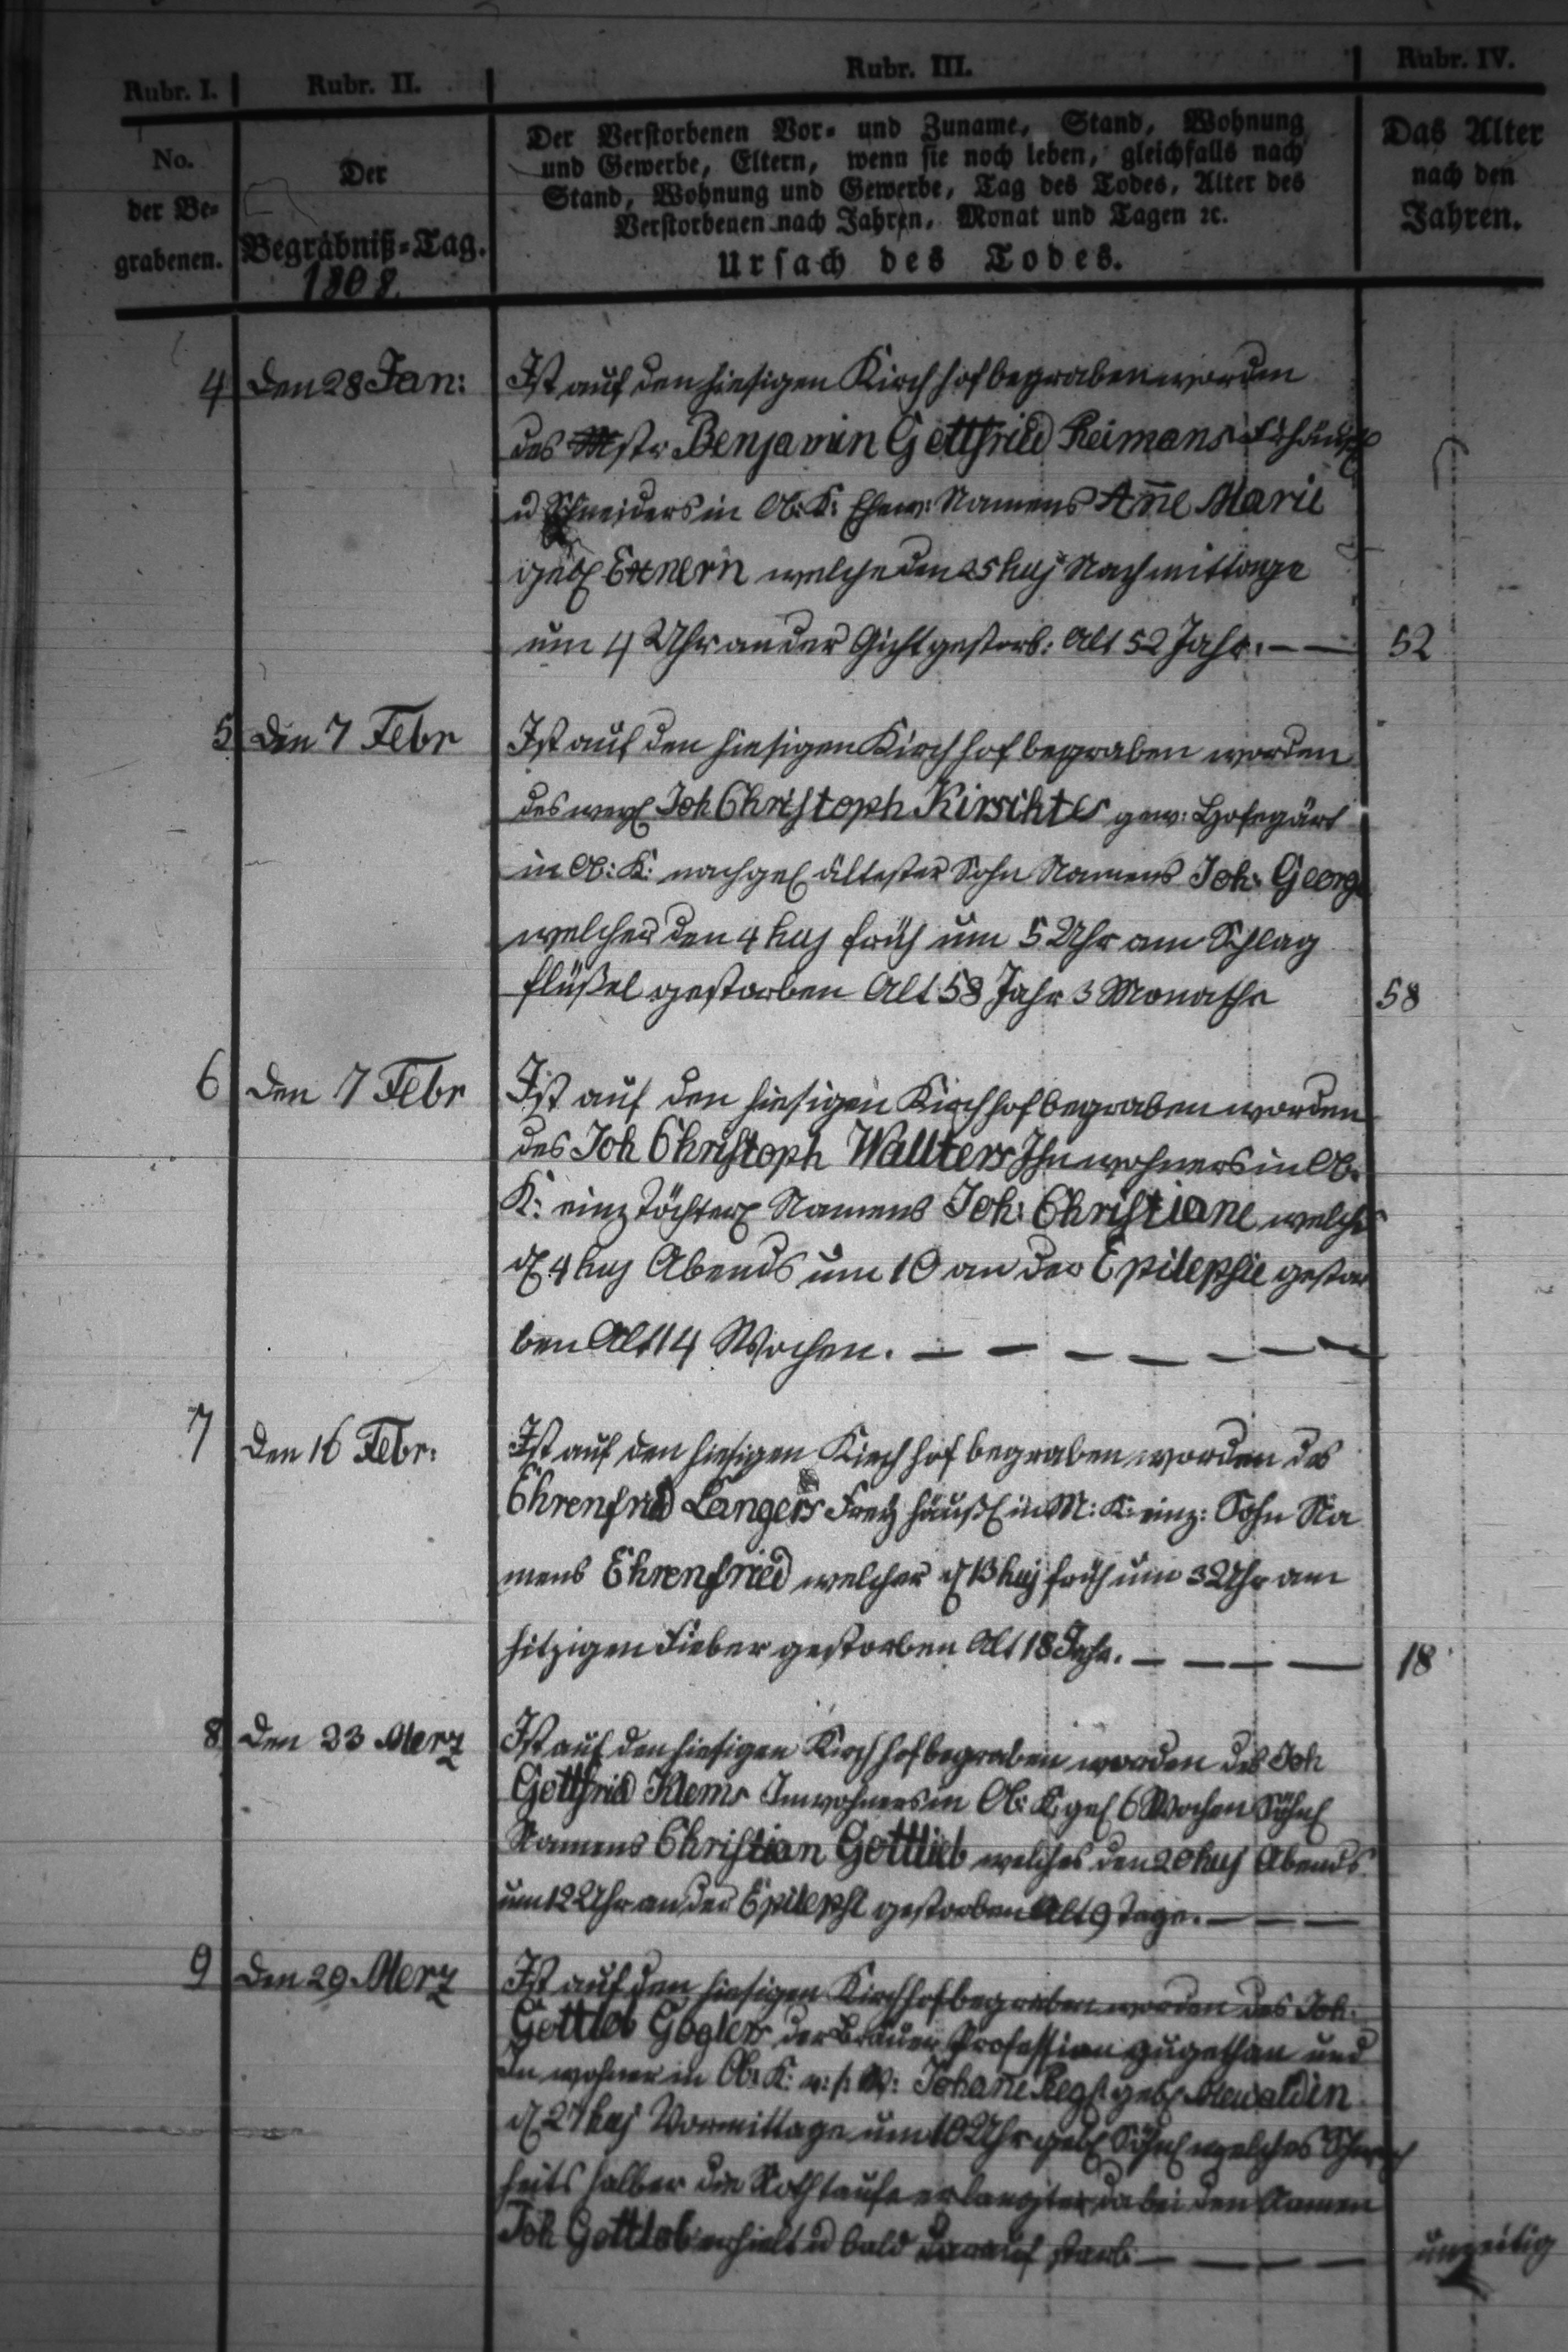 Rubr. I. Rubr. II. Rubr. III. Rubr. IV.
No.
der Be-
grabenen.
Der
Begräbniß-Tag.
1808.
Der Verstorbenen Vor- und Zuname, Stand, Wohnung
und Gewerbe, Eltern, wenn sie noch leben, gleichfalls nach
Stand, Wohnung und Gewerbe, Tag des Todes, Alter des
Verstorbenen nach Jahren, Monat und Tagen ꝛc.
Ursach des Todes.
Das Alter
nach den
Jahren.
4 den 28 Jan: Ist auf den hiesigen Kirchhof begraben worden
des Mstr Benjamin Gottfried Reimans
u Schneiders in Ob: K: Ehew: Namens Añe Marie
geb Exnern welche den 25 huj Nachmittage
um 4 Uhr an der Gicht gestorb: Alt 52 Jahr. — — 52
5 den 7 Febr Ist auf den hiesigen Kirchhof begraben worden
des weyl Joh Christoph Kirschtes gew: Hofegärt
in Ob: K: nachgel ältester Sohn Namens Joh: George
welcher den 4 huj früh um 5 Uhr am Schlag
flüßel gestorben Alt 58 Jahr 3 Monathe 58
6 den 7 Febr Ist auf den hiesigen Kirchhof begraben worden
des Joh Christoph Wallters Ihnwohners in Ob:
K: einz Töchterl Namens Joh: Christiane welche
d 4 huj Abends um 10 an der Epilepsie gestor
ben Alt 14 Wochen. — — — — — — —
7 den 16 Febr: Ist auf den hiesigen Kirchhof begraben worden des
Ehrenfried Langers Freyhäußl in M: K: einz: Sohn Na
mens Ehrenfried welcher d 13 huj früh um 3 Uhr am
hitzigen Fieber gestorben Alt 18 Jahr. — — — — 18
8 den 23 Merz Ist auf den hiesigen Kirchhof begraben worden des Joh
Gottfried Klems Inwohners in Ob: K: 6 Wochen Söhnl
Namens Christian Gottlieb welches den 20 huj Abends
um 12 Uhr an der Epileps gestorben Alt 9 Tage. — — —
9 den 29 Merz Ist auf den hiesigen Kirchhof begraben worden des Joh:
Gottlob Goglers der Brauer Profession zugethan und
In wohner in Ob: K: u: s: W: Johañe geb
d 27 huj Vormittage um 10 Uhr geb Söhnl welches Schwach
heits halber die Nothtaufe erlangte dabei den Namen
Joh Gottlob erhielt u bald darauf starb — — — — unzeitig